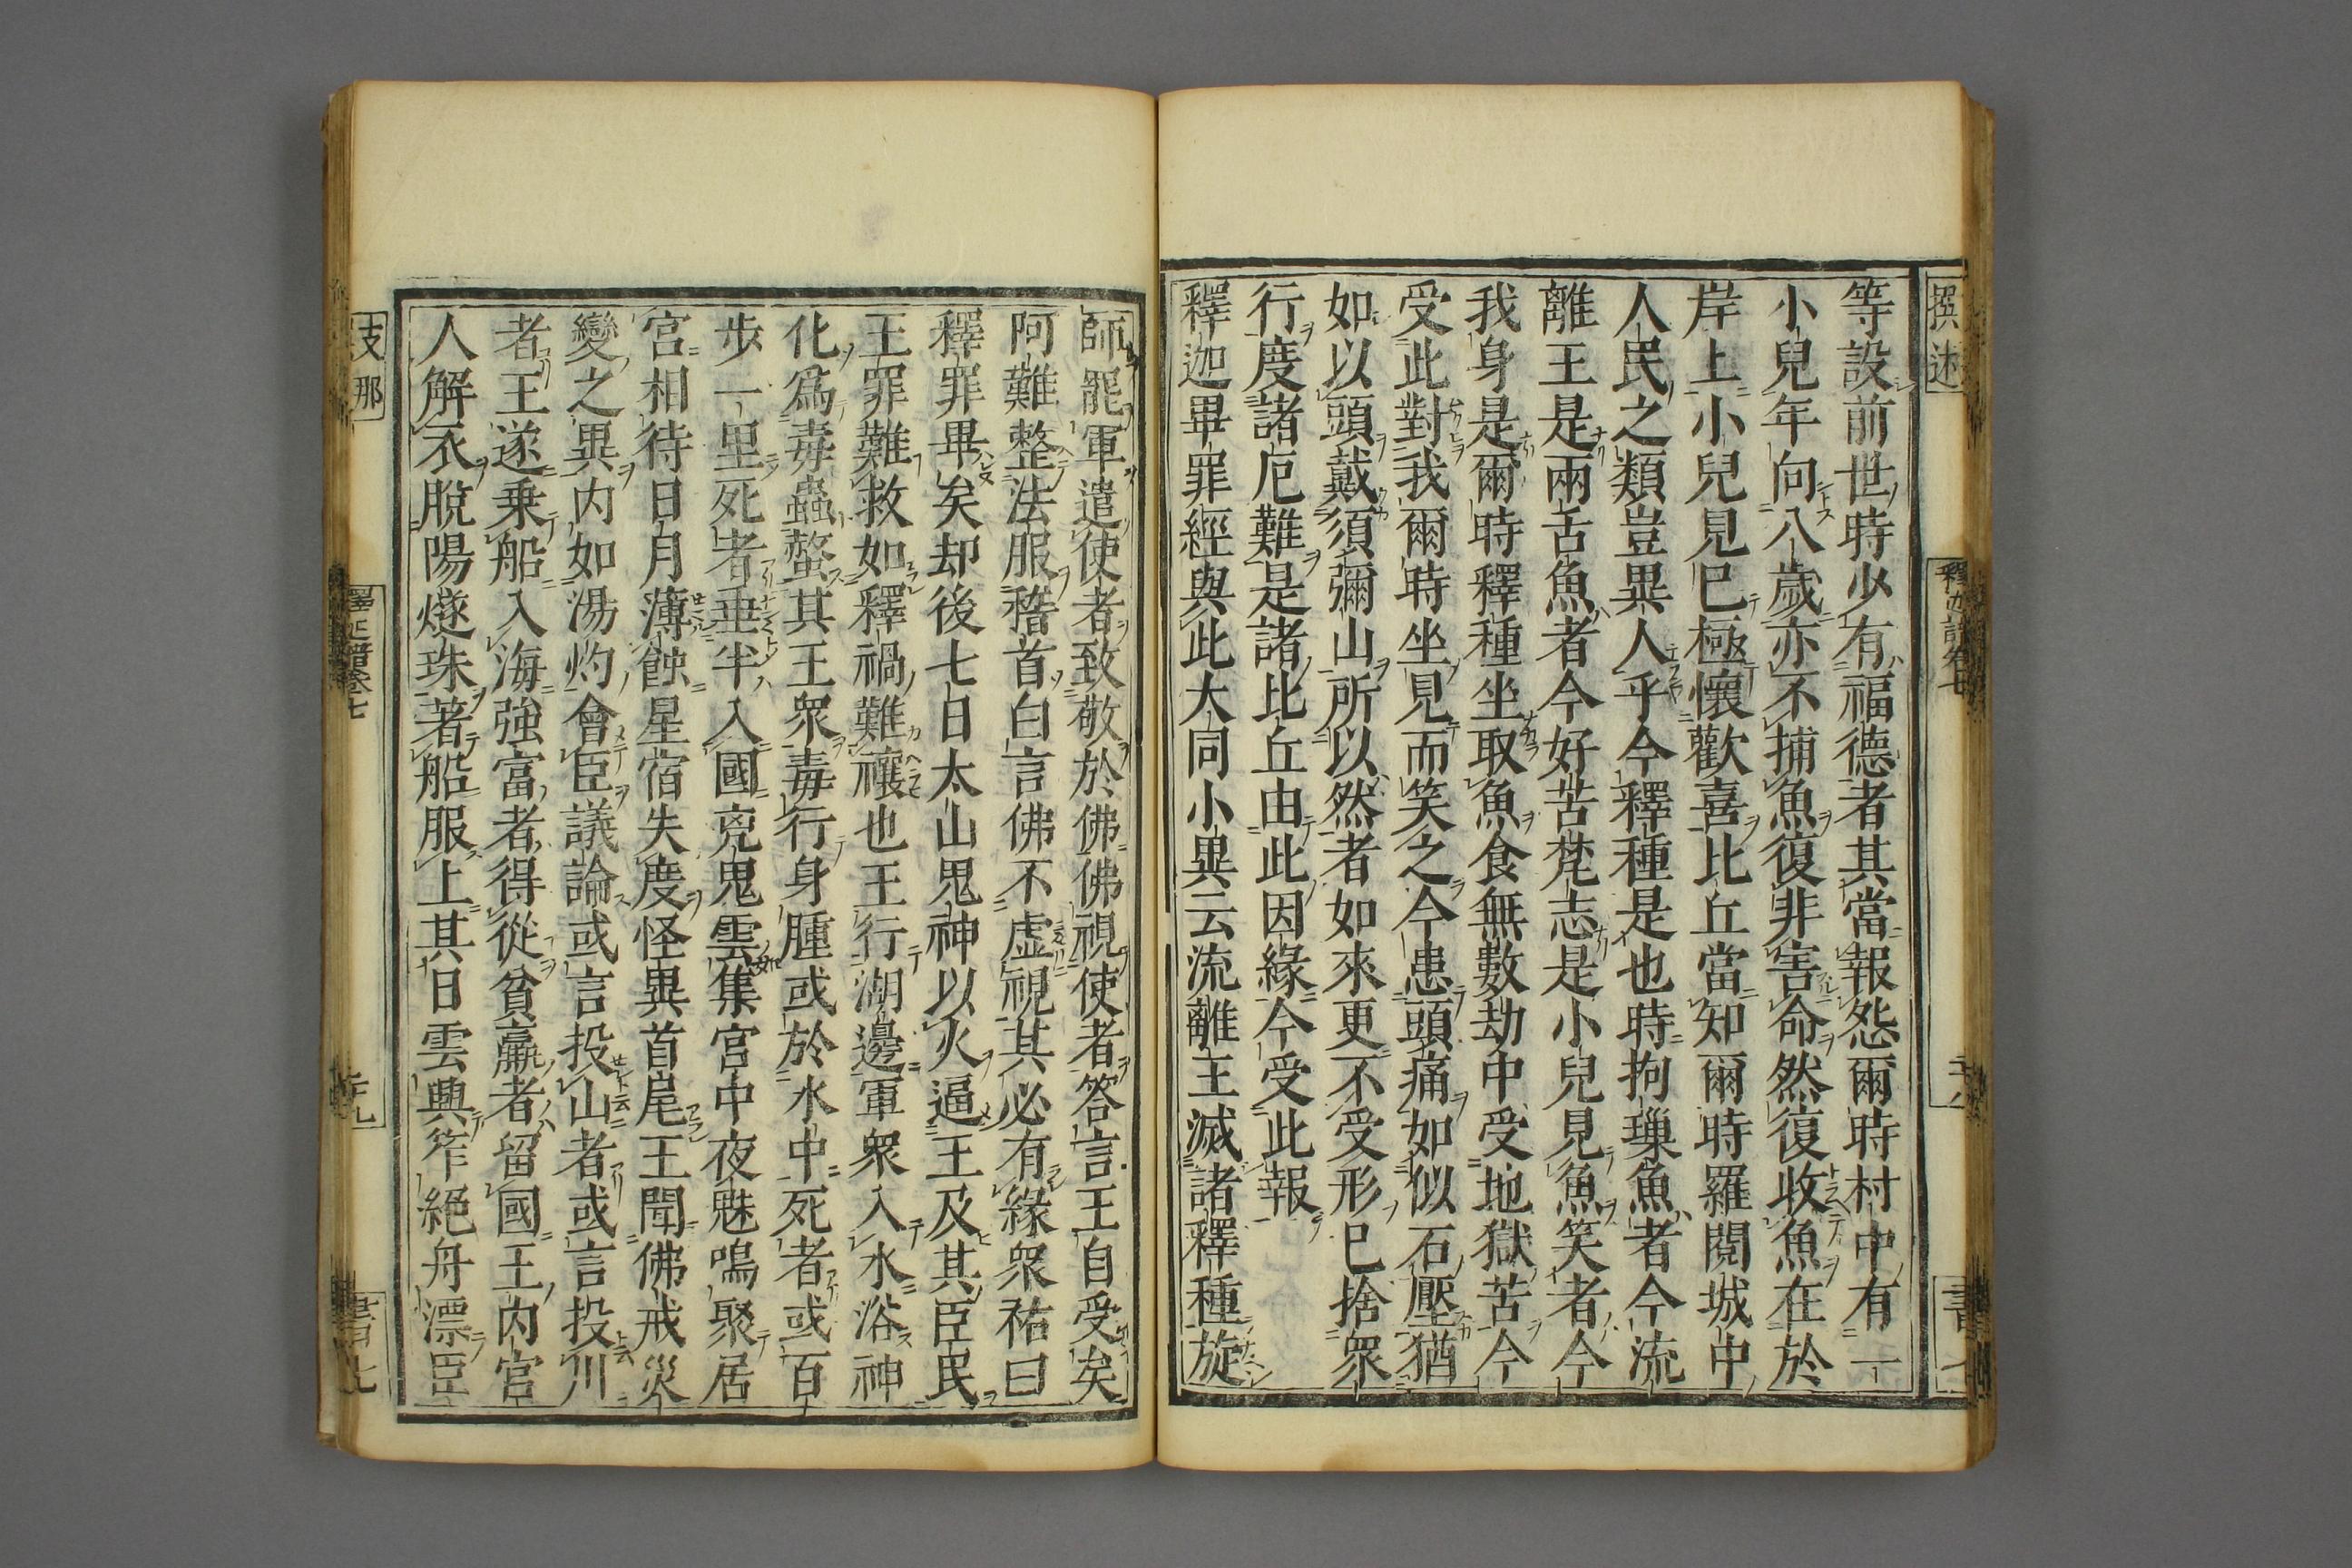 撰述
釋迦譜卷七
等設前世時少有福德者其當報怨爾時村中有一
小兒年向八歲亦不捕魚復非害命然復收魚在於
岸上小兒見已極懷歡喜比丘當知爾時羅閱城中
人民之類豈異人乎今釋種是也時拘璅魚者今流
離王是兩舌魚者今好苦梵志是小兒見魚笑者今
我身是爾時釋種坐取魚食無數劫中受地獄苦今
受此對我爾時坐見而笑之今患頭痛如似石壓猶
如以頭戴須彌山所以然者如來更不受形已捨眾
行度諸厄難是諸比丘由此因緣今受此報
釋迦畢罪經與此大同小異云流離王滅諸釋種旋
師罷軍遣使者致敬於佛佛視使者答言王自受矣
阿難整法服稽首白言佛不虛視其必有緣眾祐曰
釋罪畢矣却後七日太山鬼神以火逼王及其臣民
王罪難救如釋禍難禳也王行湖邊軍眾入水浴神
化為毒蟲螫其王眾毒行身腫或於水中死者或百
步一里死者垂半入國兇鬼雲集宮中夜魅鳴聚居
宮相待日月薄蝕星宿失度怪異首尾王聞佛戒災
變之異內如湯灼會臣議論或言投山者或言投川
者王遂乘船入海強富者得從貧羸者留國王內宮
人解衣脫陽燧珠著船服上其日雲興笮絕舟漂臣
支那